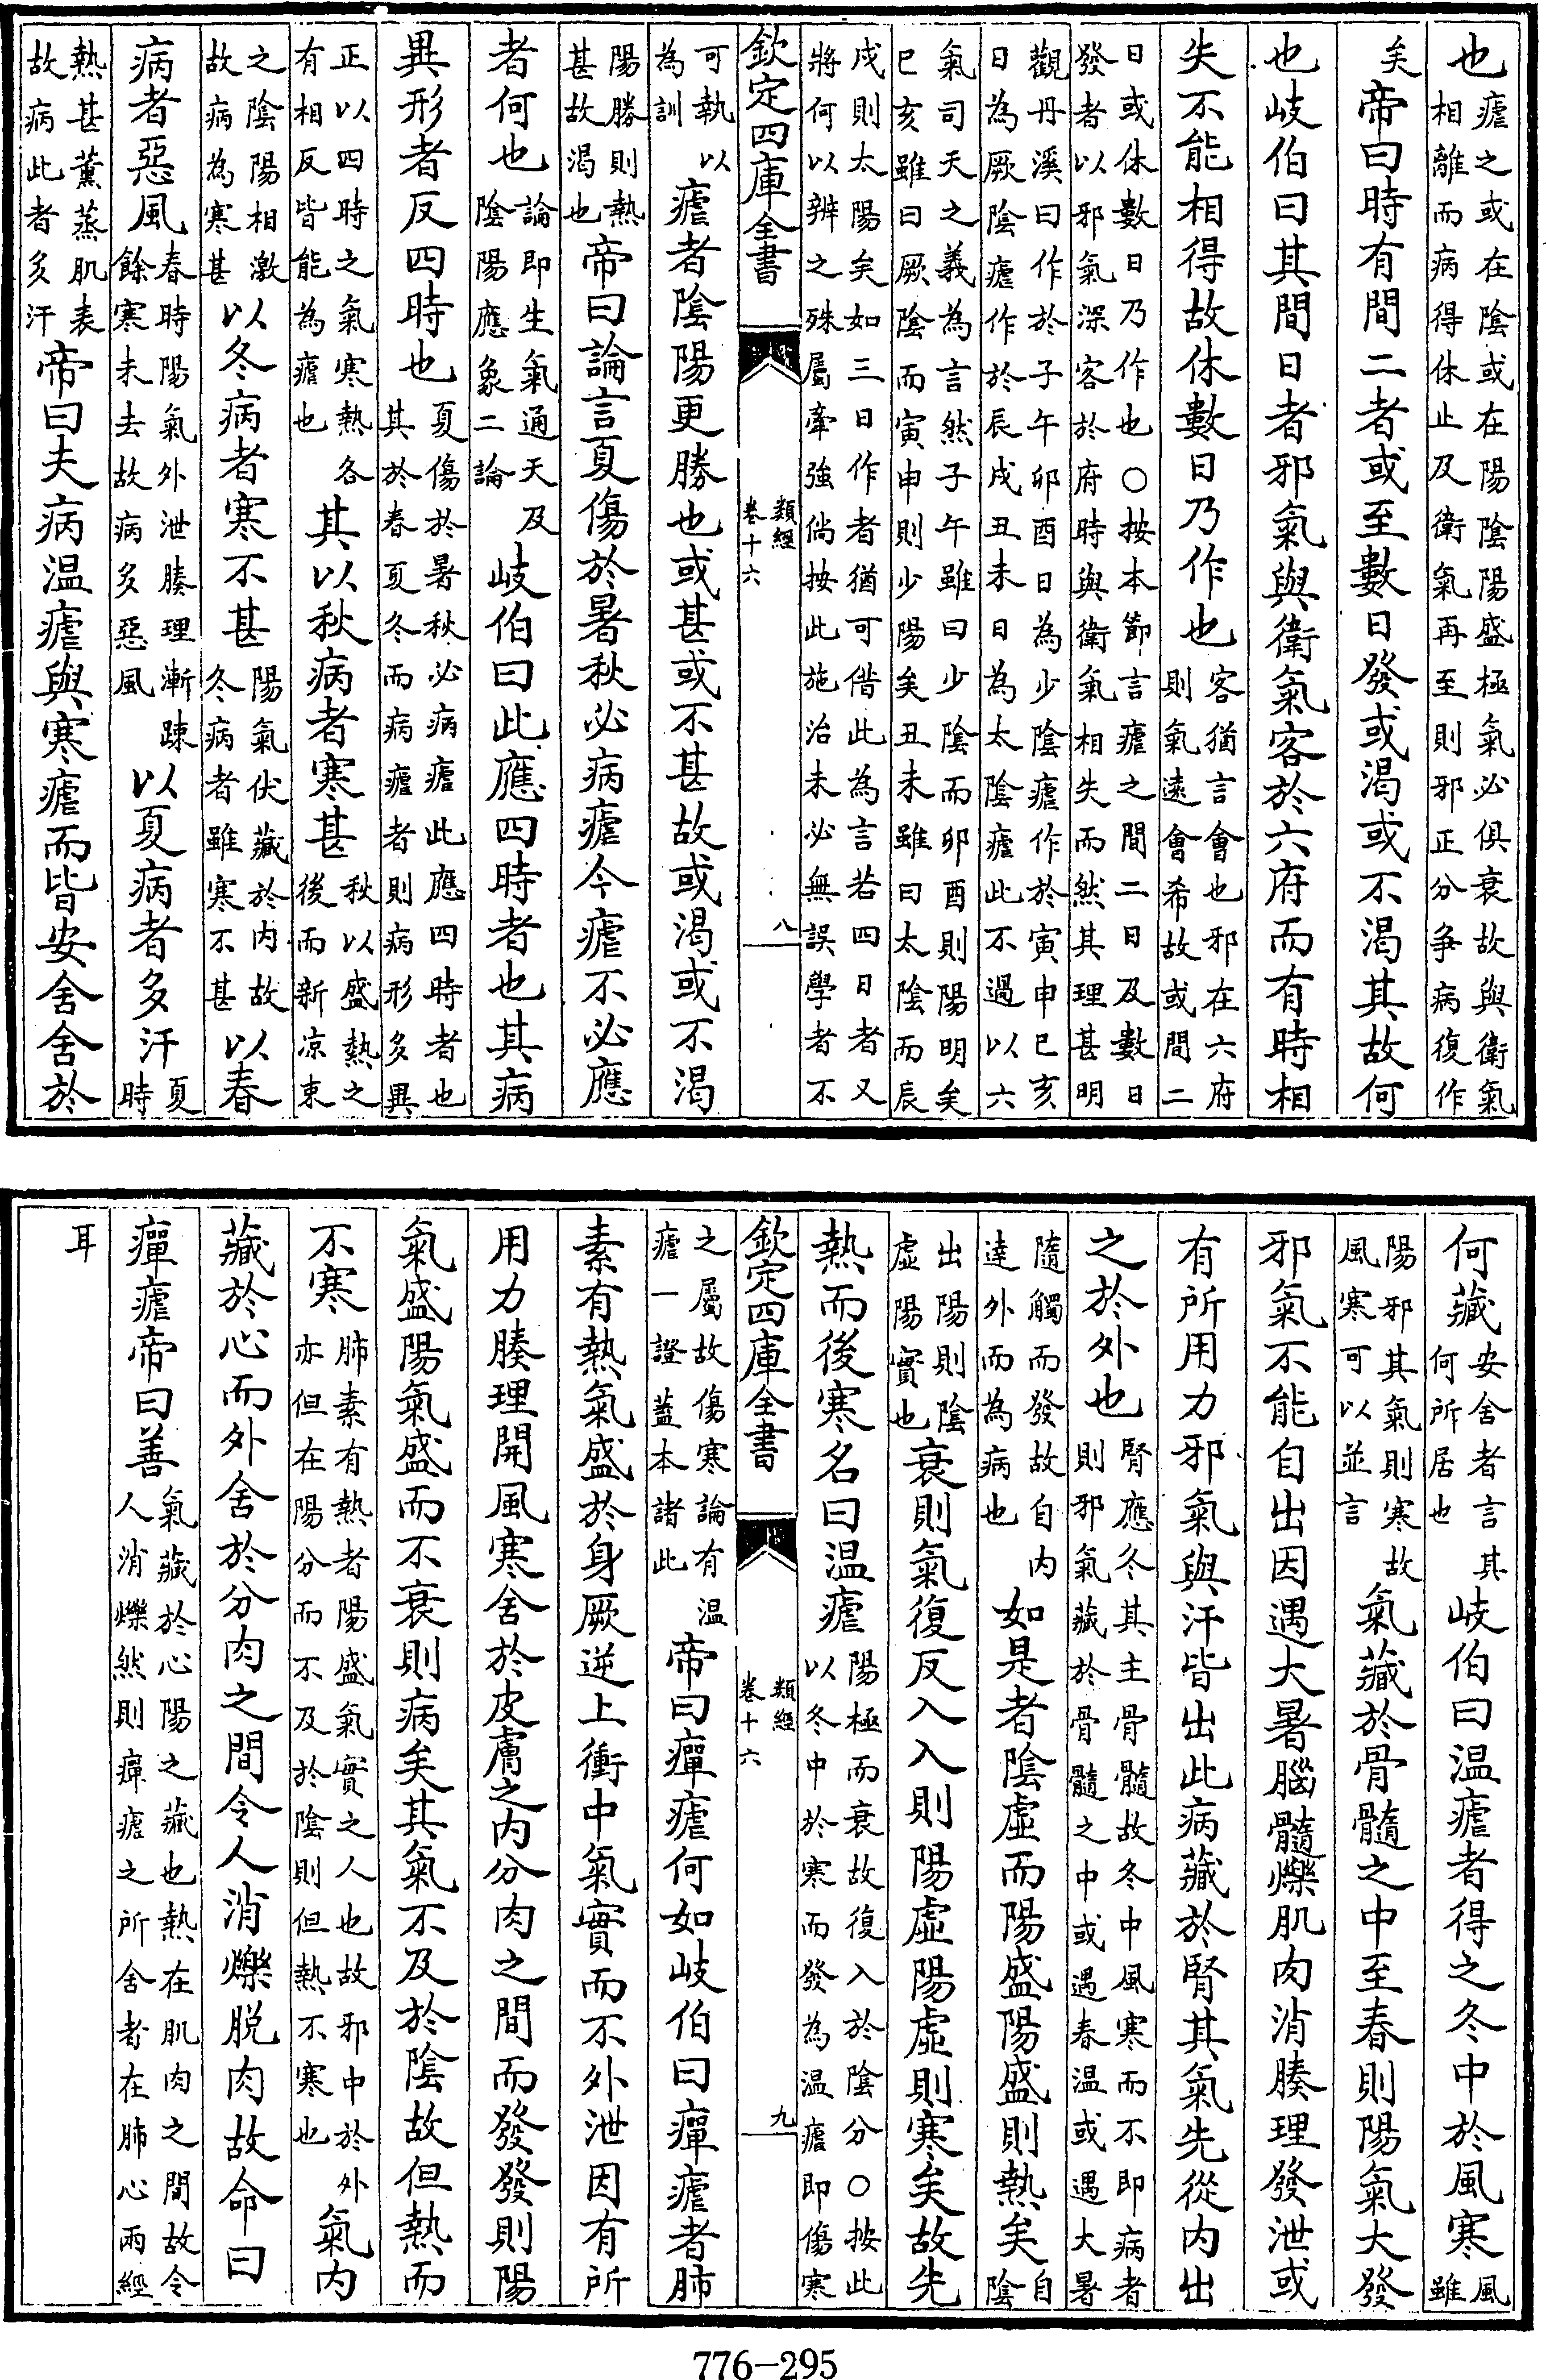 也瘧之或在陰或在陽陰陽盛極氣必俱衰故與衛氣相離而病得休止及衛氣再至則邪正分爭病復作
矣帝曰時有間二者或至數日發或渴或不渴其故何
也岐伯曰其間日者邪氣與衛氣客於六府而有時相
失不能相得故休數日乃作也客猶言會也邪在六府則氣遠會希故或間二
日或休數日乃作也○按本節言瘧之間二日及數日發者以邪氣深客於府時與衛氣相失而然其理甚明
觀丹溪曰作於子午卯酉日為少陰瘧作於寅申巳亥日為厥陰瘧作於辰戌丑未日為太陰瘧此不過以六
氣司天之義為言然子午雖曰少陰而卯酉則陽明矣巳亥雖曰厥陰而寅申則少陽矣丑未雖曰太陰而辰
戌則太陽矣如三日作者猶可借此為言若四日者又將何以辨之殊屬牽強倘按此施治未必無誤學者不
欽定四庫全書 類經 卷十六 八
可執以為訓瘧者陰陽更勝也或甚或不甚故或渴或不渴
陽勝則熱甚故渴也帝曰論言夏傷於暑秋必病瘧今瘧不必應
者何也論即生氣通天及陰陽應象二論岐伯曰此應四時者也其病
異形者反四時也夏傷於暑秋必病瘧此應四時者也其於春夏冬而病瘧者則病形多異
正以四時之氣寒熱各有相反皆能為瘧也其以秋病者寒甚秋以盛熱之後而新凉束
之陰陽相激故病為寒甚以冬病者寒不甚陽氣伏藏於内故冬病者雖寒不甚以春
病者惡風春時陽氣外泄腠理漸踈餘寒未去故病多惡風以夏病者多汗夏時
熱甚薰蒸肌表故病此者多汗帝曰夫病温瘧與寒瘧而皆安舍舍於
何藏安舍者言其何所居也岐伯曰温瘧者得之冬中於風寒風雖
陽邪其氣則寒故風寒可以並言氣藏於骨髓之中至春則陽氣大發
邪氣不能自出因遇大暑腦髓爍肌肉消腠理發泄或
有所用力邪氣與汗皆出此病藏於腎其氣先從内出
之於外也腎應冬其主骨髓故冬中風寒而不即病者則邪氣藏於骨髓之中或遇春温或遇大暑
隨觸而發故自内達外而為病也如是者陰虛而陽盛陽盛則熱矣自陰
出陽則陰虛陽實也衰則氣復反入入則陽虛陽虛則寒矣故先
熱而後寒名曰温瘧陽極而衰故復入於陰分○按此以冬中於寒而發為温瘧即傷寒
欽定四庫全書 類經 卷十六 九
之屬故傷寒論有温瘧一證蓋本諸此帝曰癉瘧何如岐伯曰癉瘧者肺
素有熱氣盛於身厥逆上衝中氣實而不外泄因有所
用力腠理開風寒舍於皮膚之内分肉之間而發發則陽
氣盛陽氣盛而不衰則病矣其氣不及於陰故但熱而
不寒肺素有熱者陽盛氣實之人也故邪中於外亦但在陽分而不及於陰則但熱不寒也氣内
藏於心而外舍於分肉之間令人消爍脱肉故命曰
癉瘧帝曰善氣藏於心陽之藏也熱在肌肉之間故令人消爍然則癉瘧之所舍者在肺心兩經
耳
776-295